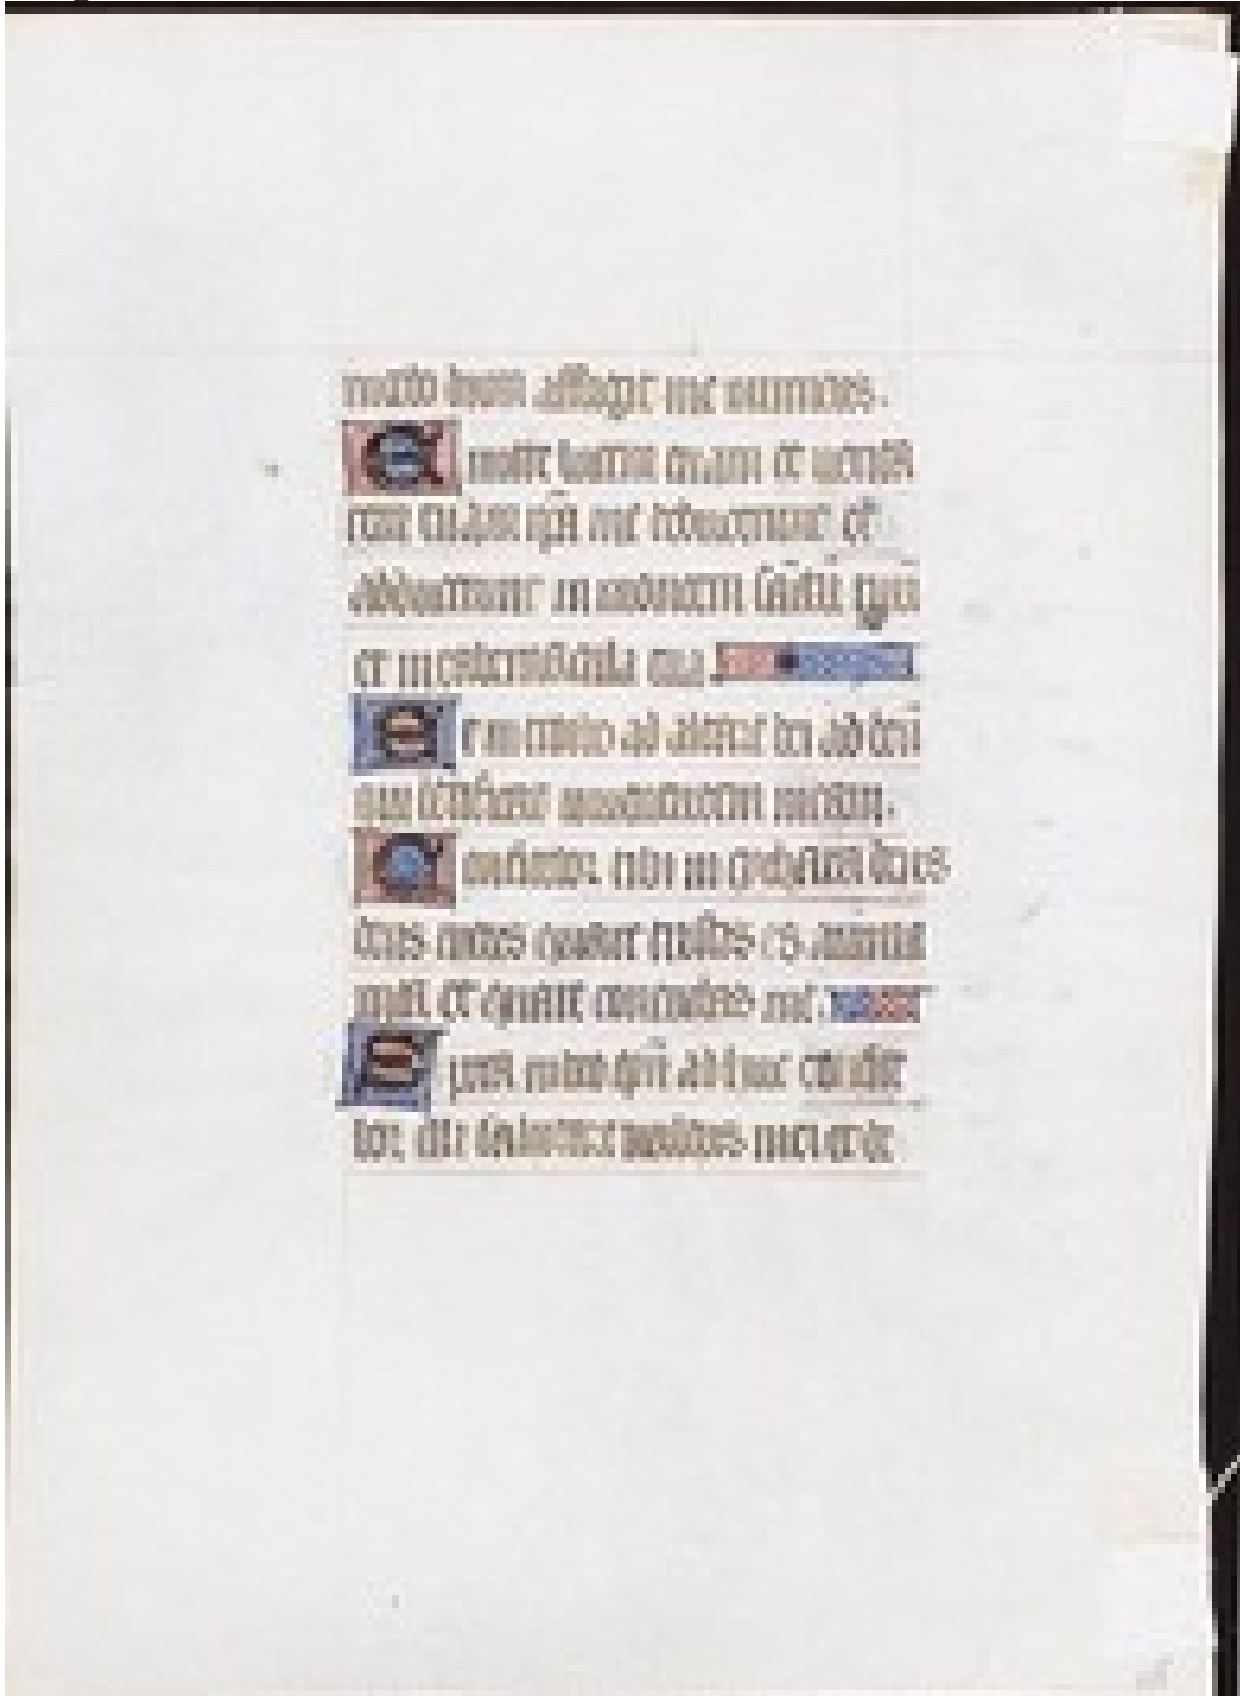 incedo dum affligit me inimicus.
Emitte lucem tuam et verita
tem tuam ipā me deduxerunt et
adduxerunt in montem sanctū tuū
et in tabernacula tua
Et introibo ad altare dei ad deū
qui letificat iuventutem meam.
Confitebor tibi in cythara deus
deus meus quare tristis es anima
mea et quare conturbas me
Spera in deo qm̄ adhuc confite
bor illi salutare vultus mei et de